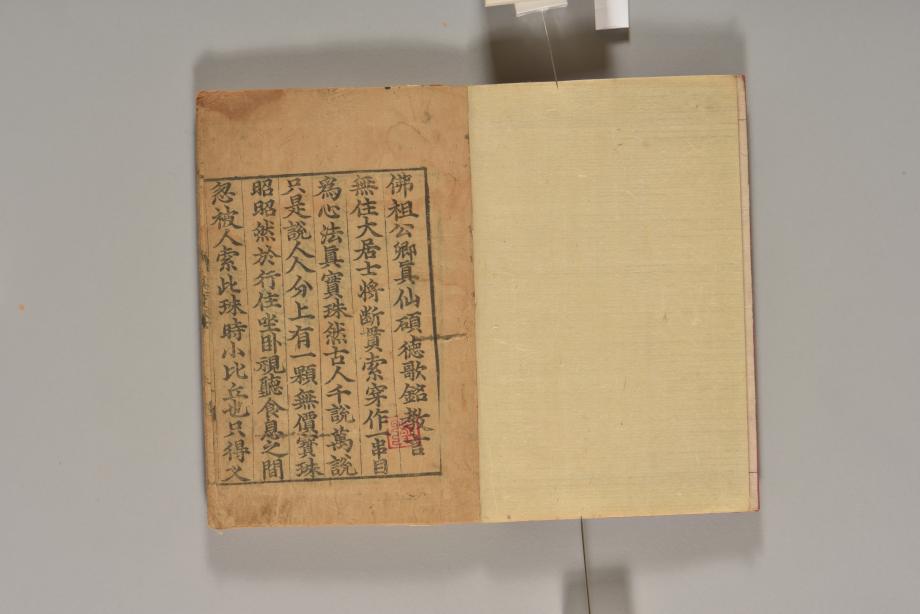 佛祖公卿眞仙碩德歌銘教言
無住大居士將斷貫索穿作一串目
爲心法眞寶珠然古人千說萬說
只是說人人分上有一顆無價寶珠
昭昭然於行住坐卧視聽食息之間
忽被人索此珠時小比丘也只得叉